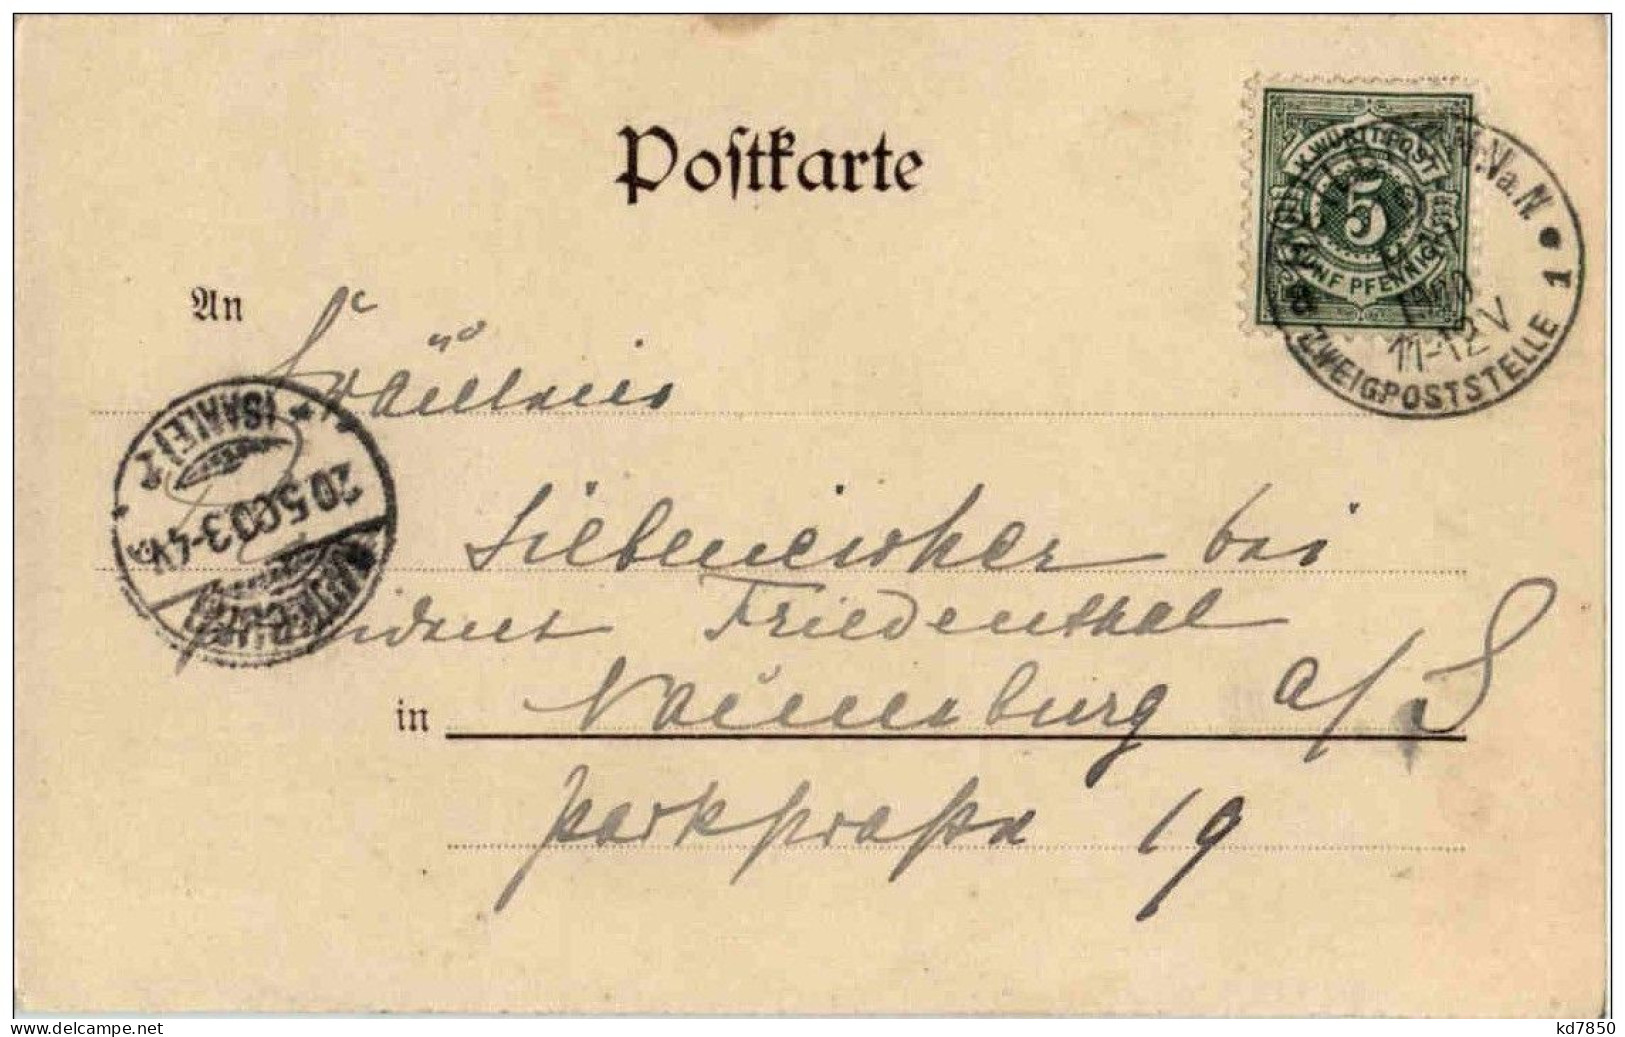 Postkarte
K. WÜRTT. POST
5
FÜNF PFENNIG
a. N
11-12 V
ZWEIGPOSTSTELLE 1
An
Fräulein
(SAALE) 2
20.5.00 3-4 V.
bei
Friedenthal
in Naumburg a/S
Parkstraße 19
www.delcampe.net
kd7850